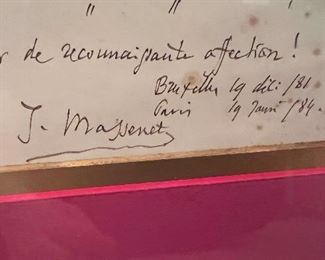 " "
de reconnaissante affection !
Bruxelles 19 déc: /81
J. Massenet
Paris 19 Janv /84.